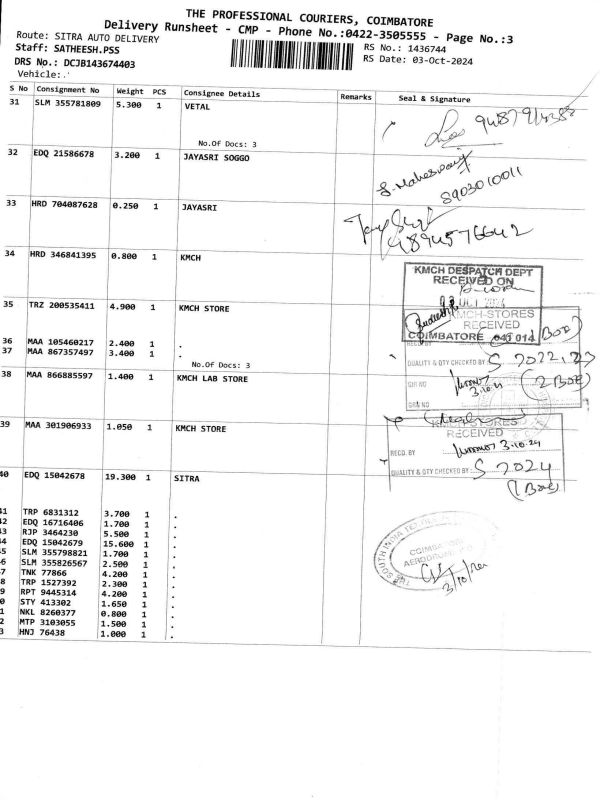 THE PROFESSIONAL COURIERS, COIMBATORE
Delivery Runsheet - CMP - Phone No.:0422-3505555 - Page No.:3
Route: SITRA AUTO DELIVERY
RS No.: 1436744
Staff: SATHEESH.PSS
RS Date: 03-Oct-2024
DRS No.: DCJB143674403
Vehicle:.
S No Consignment No Weight PCS Consignee Details Remarks Seal & Signature
31 SLM 355781809 5.300 1 VETAL
No.Of Docs: 3
32 EDQ 21586678 3.200 1 JAYASRI SOGGO
8903010011
33 HRD 704087628 0.250 1 JAYASRI
9894576642
34 HRD 346841395 0.800 1 KMCH
KMCH DESPATCH DEPT
RECEIVED ON
OCT 2024
35 TRZ 200535411 4.900 1 KMCH STORE
KMCH-STORES
RECEIVED
COIMBATORE 641 014
36 MAA 105460217 2.400 1 .
37 MAA 867357497 3.400 1 .
No.Of Docs: 3
QUALITY & QTY CHECKED BY S 2022, 23
38 MAA 866885597 1.400 1 KMCH LAB STORE
GIR NO
3.10.24
(2 Box)
GRN NO
39 MAA 301906933 1.050 1 KMCH STORE
KMCH-STORES
RECEIVED
RECD. BY 3.10.24
QUALITY & QTY CHECKED BY S 2024
(1 Box)
40 EDQ 15042678 19.300 1 SITRA
41 TRP 6831312 3.700 1 .
42 EDQ 16716406 1.700 1 .
43 RJP 3464230 5.500 1 .
44 EDQ 15042679 15.600 1 .
45 SLM 355798821 1.700 1 .
6 SLM 355826567 2.500 1 .
7 TNK 77866 4.200 1 .
8 TRP 1527392 2.300 1 .
9 RPT 9445314 4.200 1 .
0 STY 413302 1.650 1 .
1 NKL 8260377 0.800 1 .
2 MTP 3103055 1.500 1 .
3 HNJ 76438 1.000 1 .
THE SOUTH INDIA
COIMBATORE
AERODROME